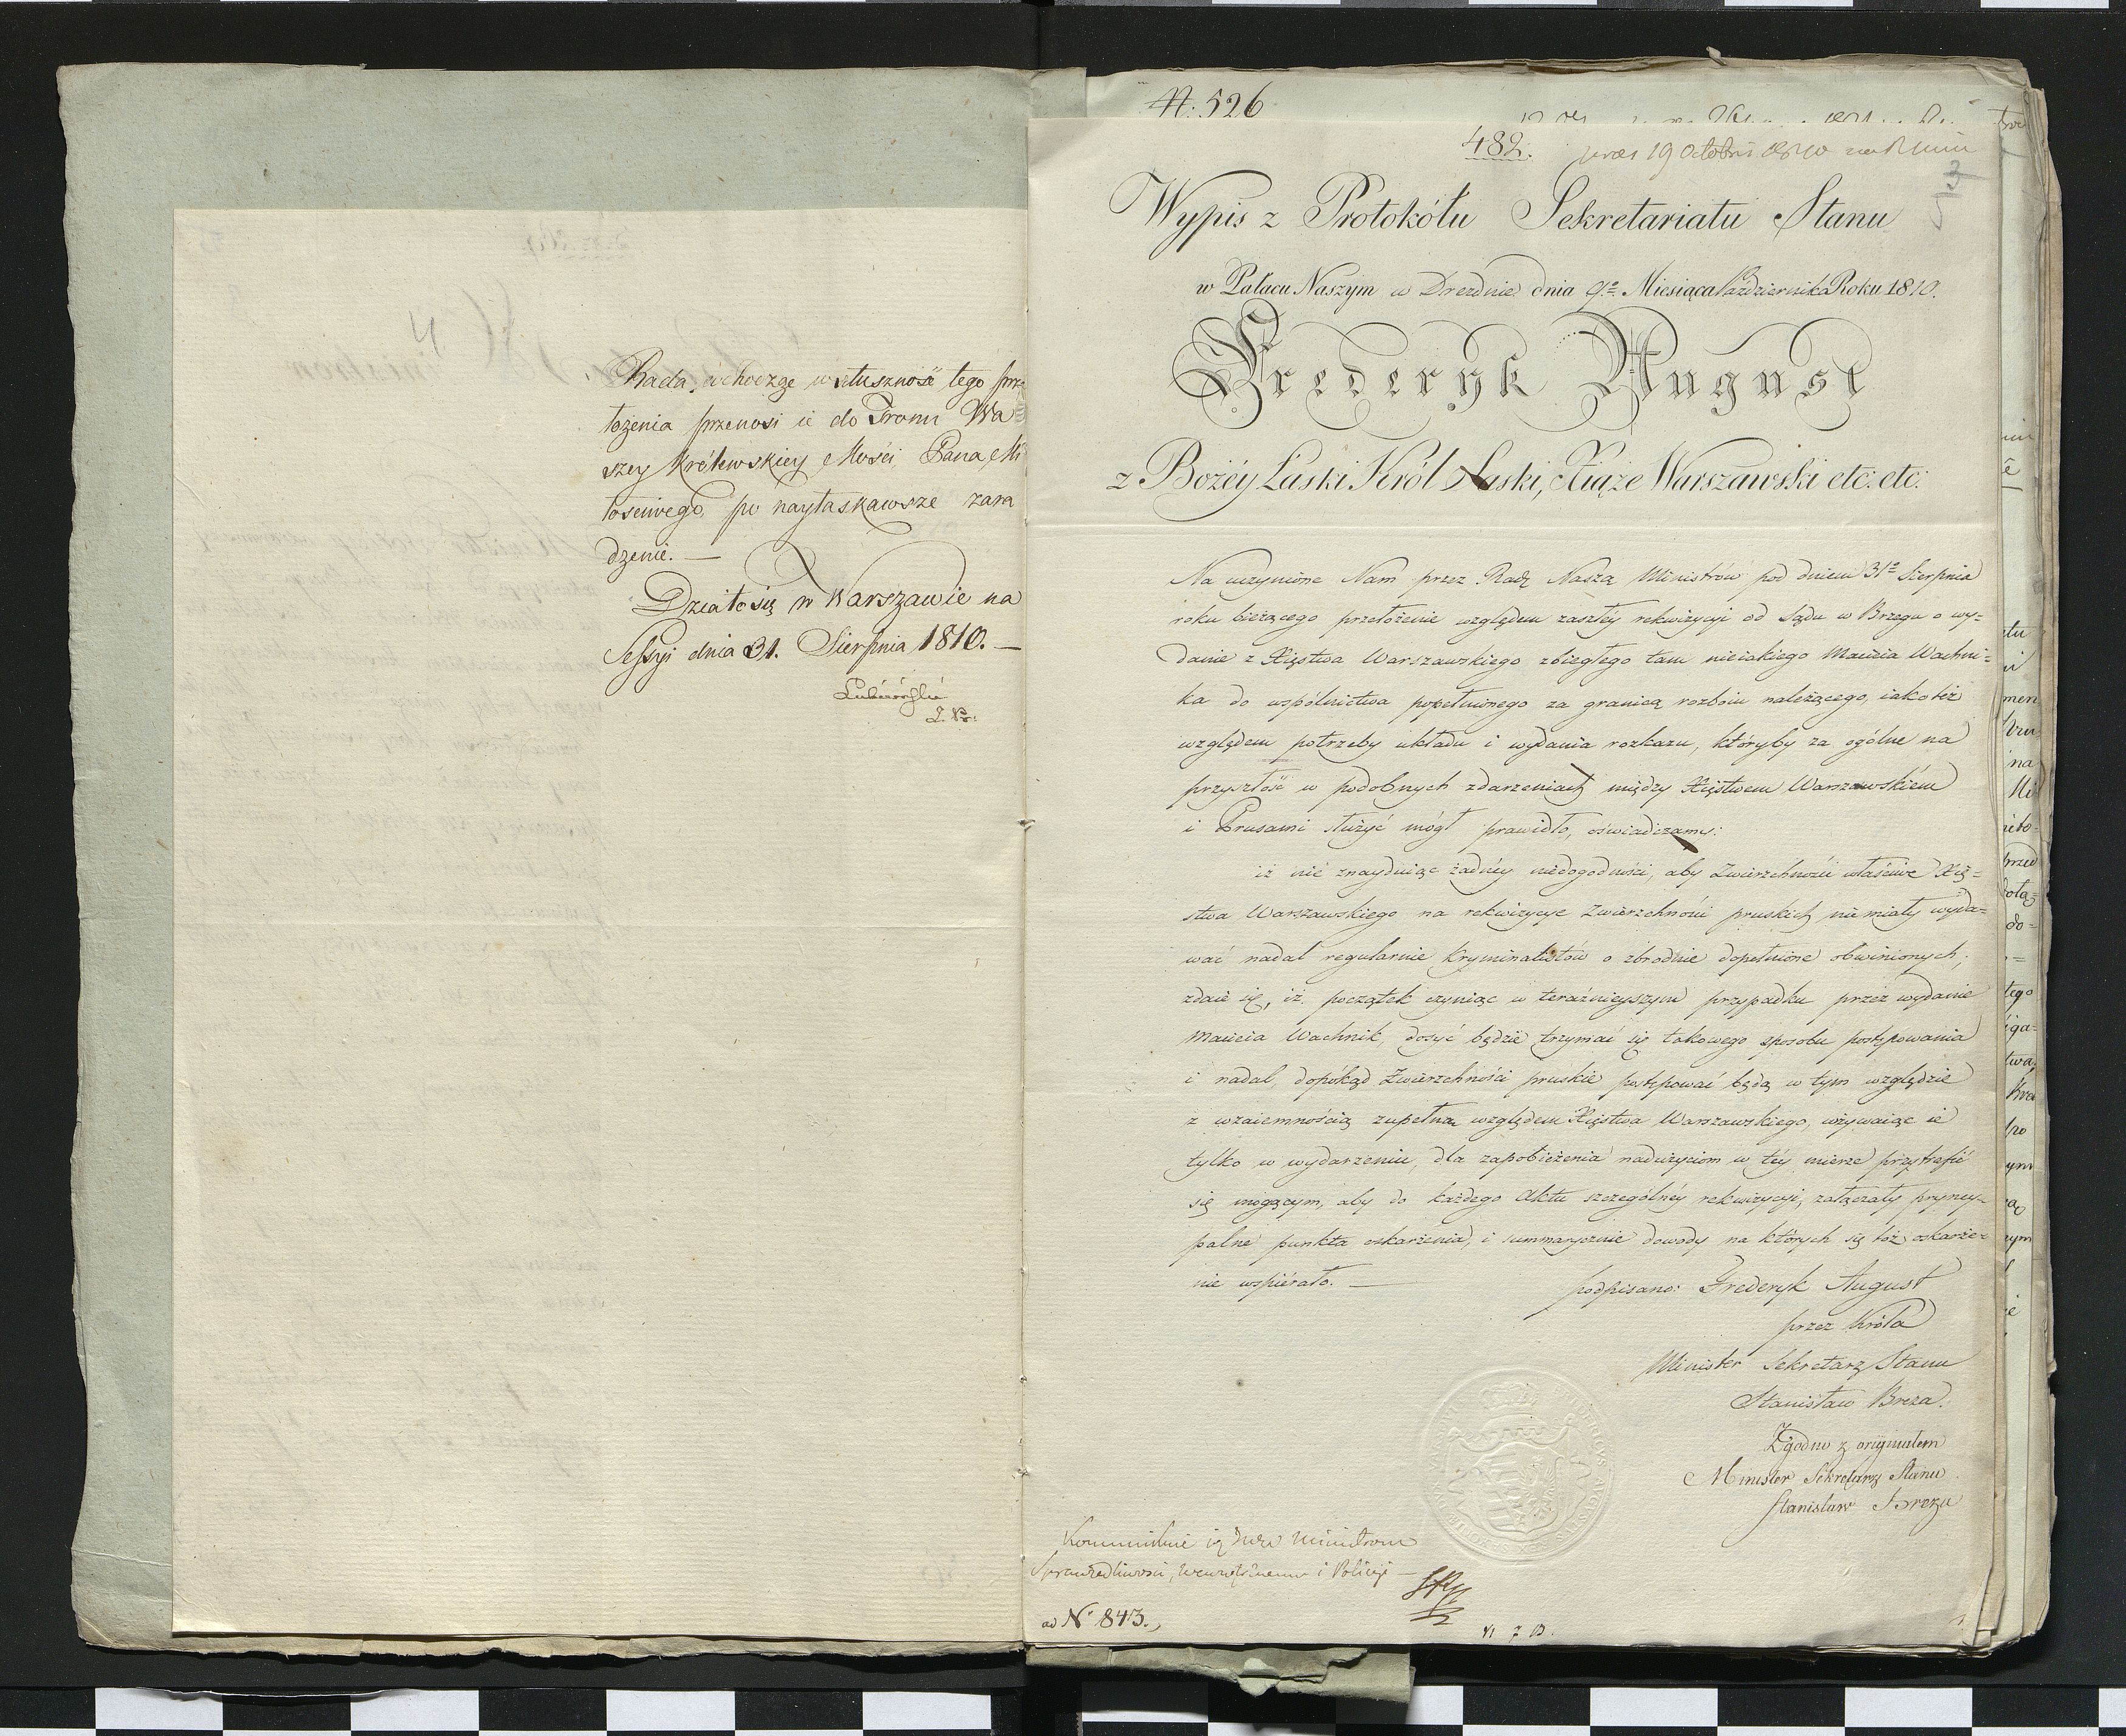 4.
Rada, wchodząc w słuszność tego prze
łożenia przenosi ie do Tronu Wa
szey Królewskiey Mości Pana Mi
łościwego, po nayłaskawsze zara
dzenie. —
Działo się w Warszawie na
Sessyi dnia 31. Sierpnia 1810. —
N: 526
482. praes 19 Octobris 1810
Wypis z Protokółu Sekretariatu Stanu
w Pałacu Naszym w Dreznie dnia 9º Miesiąca Października Roku 1810.
Fryderyk August
z Bożéy Łaski Król Saski, Xiąże Warszawski etc: etc:
Na uczynione Nam przez Radę Naszą Ministrów pod dniem 31º Sierpnia
roku bieżącego przełożenie względem zaszłéy rekwizycyi od Sądu w Brzegu o wy=
danie z Xięstwa Warszawskiego zbiegłego tam nieiakiego Macieia Wachni=
ka do wspólnictwa popełnionego za granicą rozboiu należącego, iakoteż
względem potrzeby układu i wydania rozkazu, któryby za ogólne na
przyszłość w podobnych zdarzeniach między Xięstwem Warszawskiém
i Prusami służyć mógł prawidło, oświadczamy:
iż nié znayduiąc żadnéy niedogodności, aby Zwierzchności właściwe Xię=
stwa Warszawskiego na rekwizycye Zwierzchności pruskich nie miały wyda=
wać nadal regularnie kryminalistów o zbrodnie dopełnione obwinionych;
zdaie się, iż początek czyniąc w teraźnieyszym przypadku przez wydanie
Macieia Wachnik, dosyć będzie trzymać się takowego sposobu postępowania
i nadal, dopókąd Zwierzchności pruskie postępować będą w tym względzie
z wzaiemnością zupełną względem Xięstwa Warszawskiego, wzywaiąc ie
tylko w wydarzeniu, dla zapobieżenia nadużyciom w téy mierze przytrafić
się mogącym, aby do każdego Aktu szczególnéy rekwizycyi, załączały pryncy=
palne punkta oskarżenia, i summarycznie dowody na których się toż oskarże=
nie wspiérało. —
podpisano: Fryderyk August
przez Króla
Minister Sekretarz Stanu
Stanisław Breza.
Zgodno z oryginałem
Minister Sekretarz Stanu
Stanisław Breza
Kommunikuie się JWW Ministrom
Sprawiedliwości, Wewnętrznemu i Policyi —
ad Nº 843.